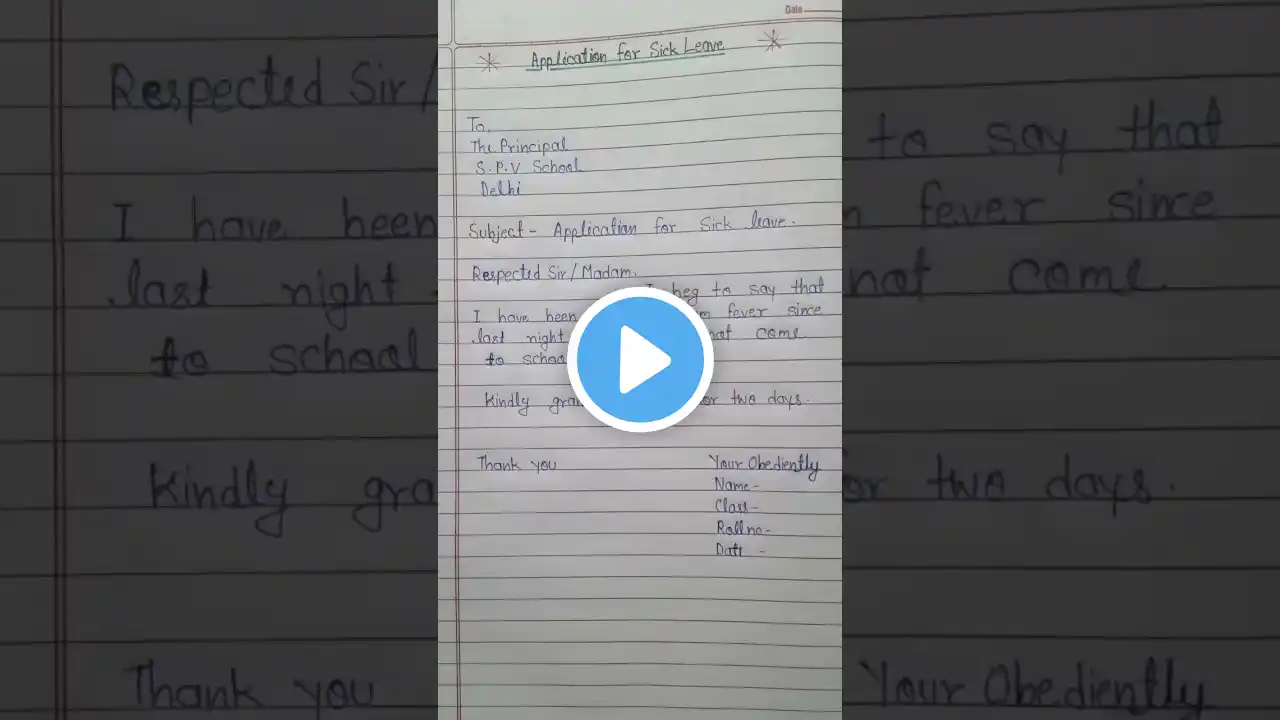 Date
Application for Sick Leave
To,
The Principal
S.P.V School
Delhi
Subject - Application for Sick leave.
Respected Sir/Madam.
I beg to say that
I have been fever since
last night not come
to school
Kindly two days.
Thank you
Your Obediently
Name-
Class-
Roll no-
Date -